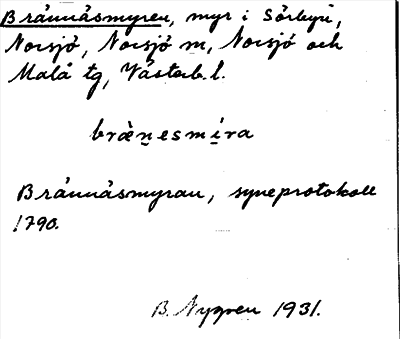 Brännåsmyren, myr i Sörbyn,
Norsjö, Norsjö m, Norsjö och
Malå tg, Västerb. l.
bræ̀n̲esmi̲ra
Brännåsmyran, syneprotokoll
1790.
B. Nygren 1931.